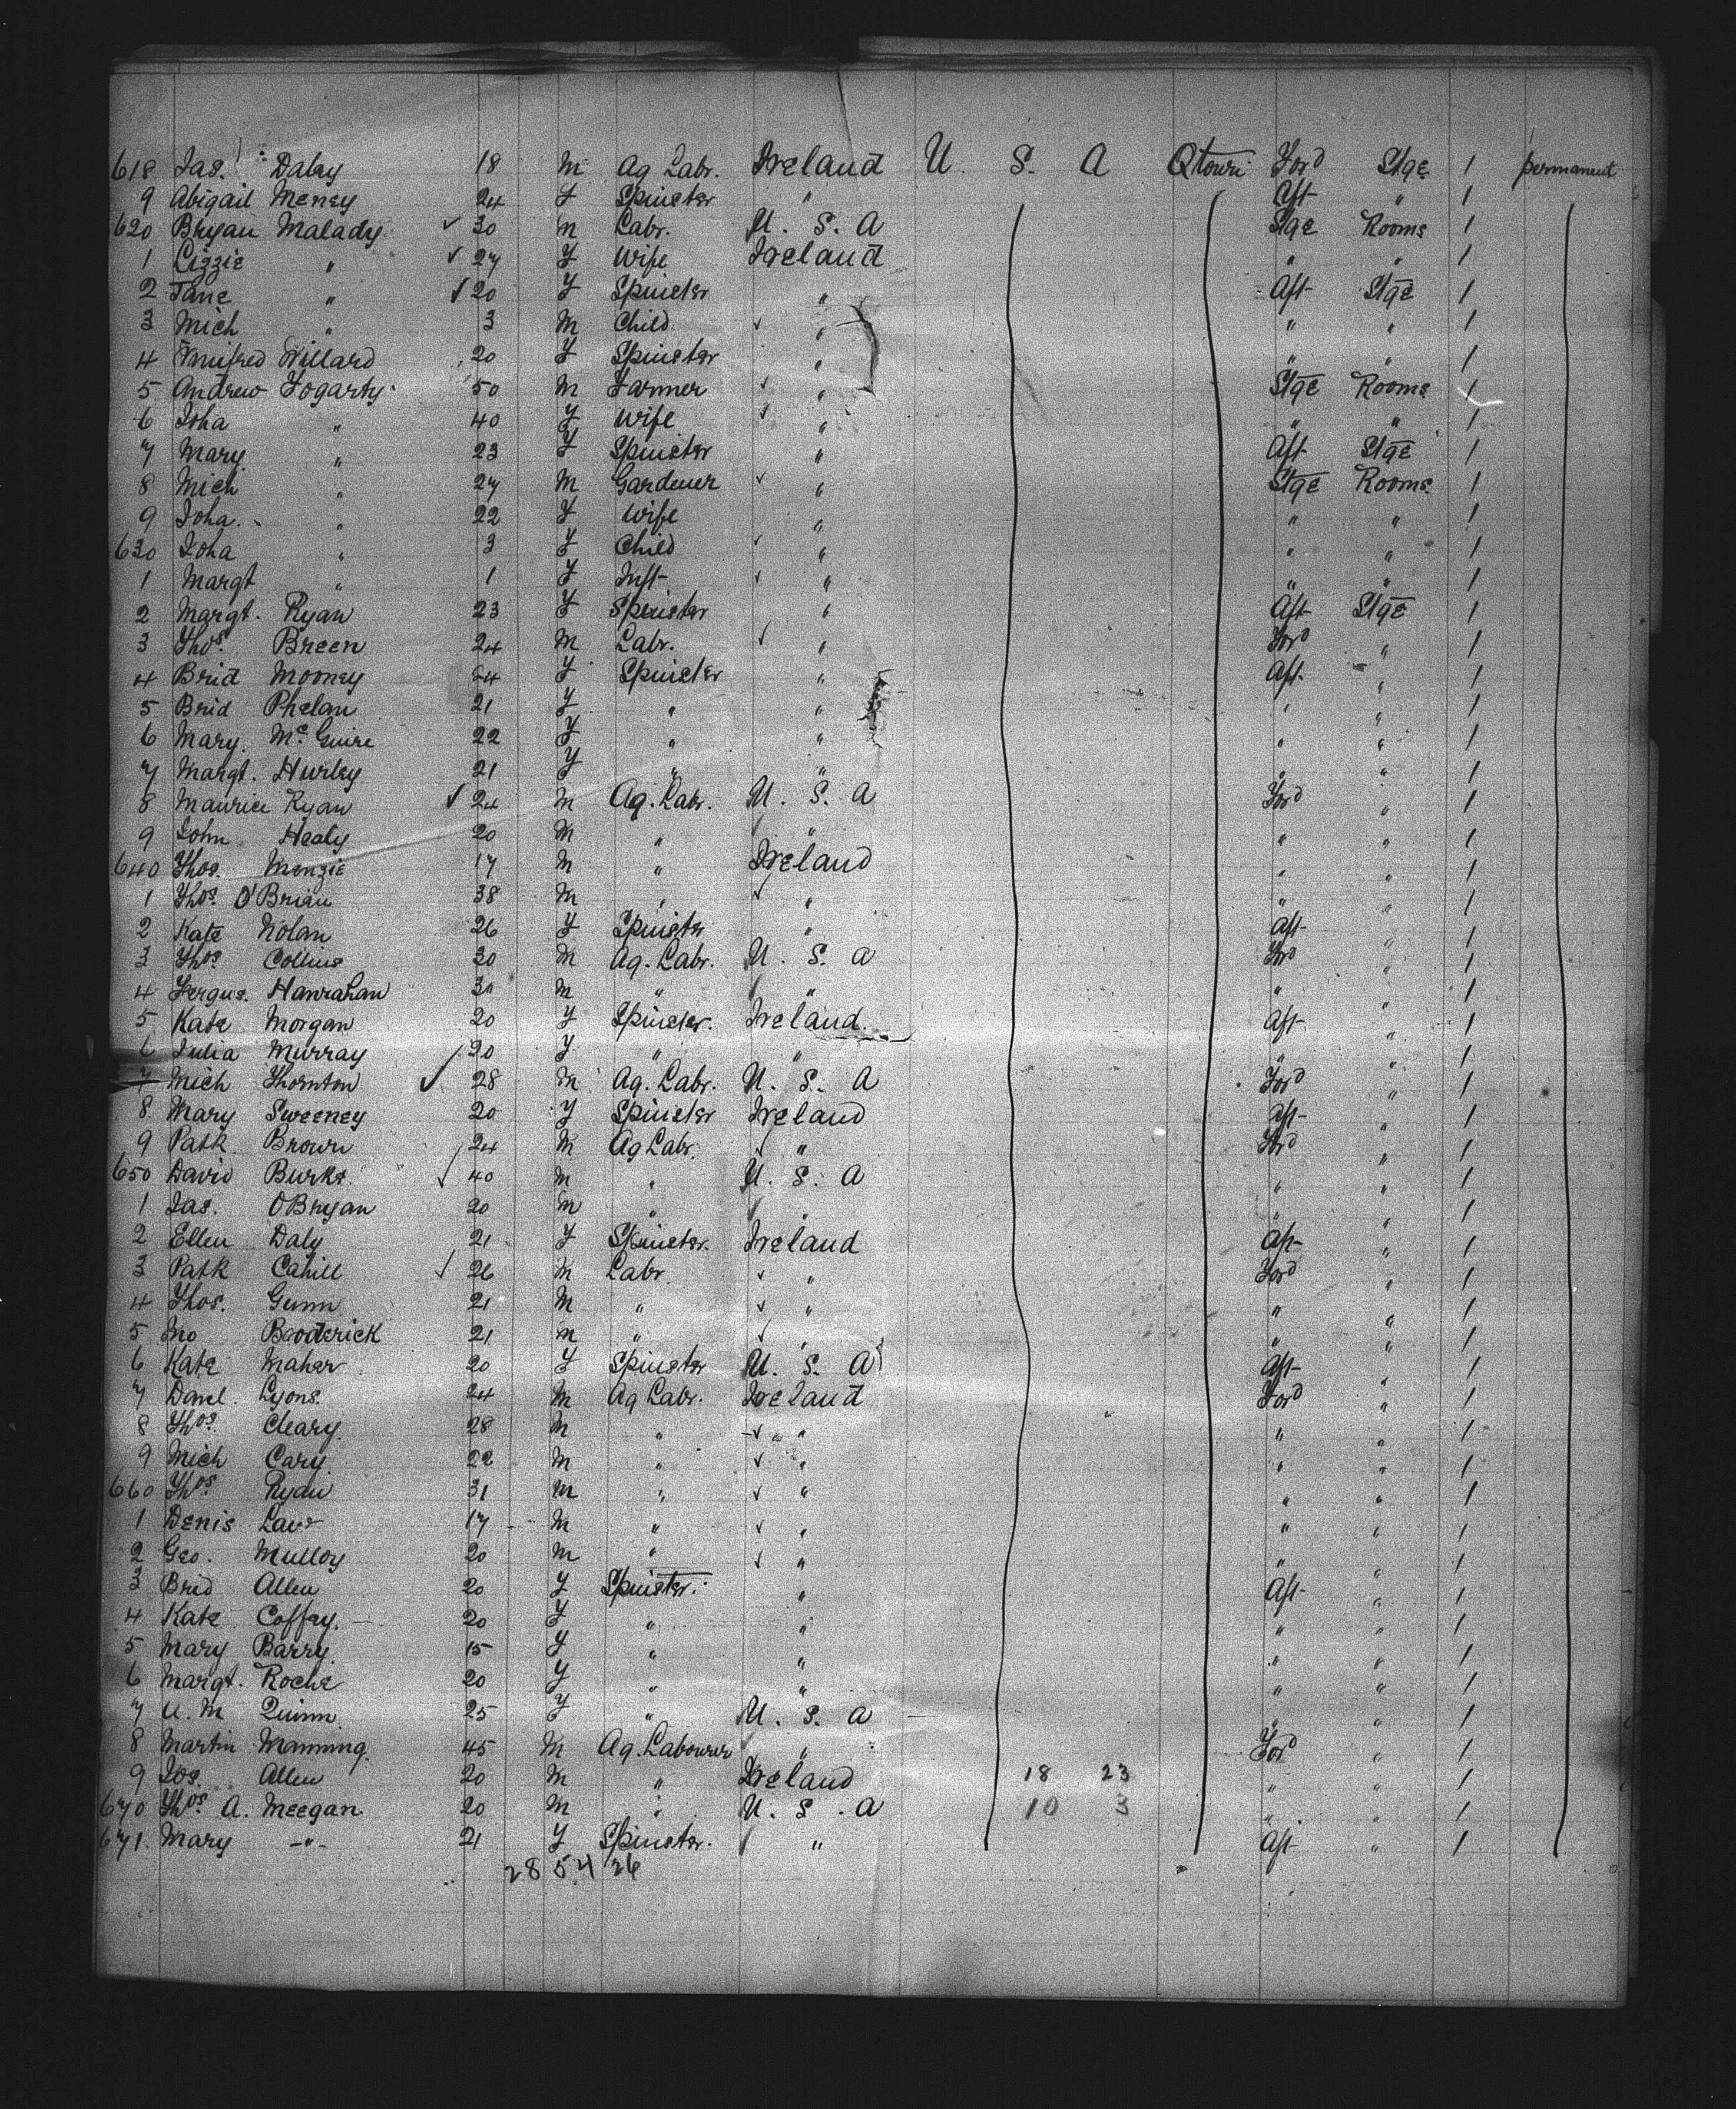 618 Jas. Daley 18 M Ag Labr. Ireland U. S. A Qtown Ford Stge 1 permanent
9 Abigail Meney 24 F Spinster " Aft " 1
620 Bryan Malady ✓ 30 M Labr. U. S. A Stge Rooms 1
1 Lizzie " ✓ 27 F Wife Ireland " " 1
2 Jane " ✓ 20 F Spinster " Aft Stge 1
3 Mich " 3 M Child ✓ " " " 1
4 Winifred Willard 20 F Spinster " " " 1
5 Andrew Fogarty 50 M Farmer ✓ " Stge Rooms 1
6 Joha " 40 F Wife ✓ " " " 1
7 Mary " 23 F Spinster " Aft Stge 1
8 Mich " 27 M Gardener ✓ " Stge Rooms 1
9 Joha. " 22 F Wife " " " 1
630 Joha " 3 F Child ✓ " " " 1
1 Margt " 1 F Inft ✓ " " " 1
2 Margt. Ryan 23 F Spinster " Aft Stge 1
3 Thos. Breen 24 M Labr. ✓ " Ford " 1
4 Brid Mooney 24 F Spinster " Aft " 1
5 Brid Phelan 21 F " " " " 1
6 Mary. Mc Guire 22 F " " " " 1
7 Margt. Hurley 21 F " " " " 1
8 Maurice Ryan ✓ 24 M Ag. Labr. U. S. A Ford " 1
9 John Healy 20 M " " " " 1
640 Thos. Menzie 17 M " Ireland " " 1
1 Thos. O'Brian 38 M " ✓ " " " 1
2 Kate Nolan 26 F Spinster " Aft " 1
3 Thos Collins 30 M Ag. Labr. U. S. A Ford " 1
4 Fergus. Hanrahan M " " " " 1
5 Kate Morgan 20 F Spinster. Ireland Aft " 1
6 Julia Murray 20 F " " " " 1
7 Mich Thornton ✓ 28 M Ag. Labr. U. S. A Ford " 1
8 Mary Sweeney 20 F Spinster Ireland Aft " 1
9 Patk Brown 24 M Ag Labr. ✓ " Ford " 1
650 David Burke ✓ 40 M " U. S. A " " 1
1 Jas. OBryan 20 M " " " " 1
2 Ellen Daly 21 F Spinster. Ireland Aft " 1
3 Patk Cahill ✓ 26 M Labr. ✓ " Ford " 1
4 Thos. Gunn 21 M " ✓ " " " 1
5 Jno Broderick 21 M " ✓ " " " 1
6 Kate Maher 20 F Spinster U. S. A Aft " 1
7 Danl. Lyons. 24 M Ag Labr. Ireland Ford " 1
8 Thos. Cleary. 28 M " ✓ " " " 1
9 Mich Cary 22 M " ✓ " " " 1
660 Thos. Ryan 31 M " ✓ " " " 1
1 Denis 17 M " ✓ " " " 1
2 Geo. Mulloy 20 M " ✓ " " " 1
3 Brid Allen 20 F Spinster. " Aft " 1
4 Kate Coffey. 20 F " " " " 1
5 Mary Barry. 15 F " " " " 1
6 Margt. Roche 20 F " " " " 1
7 U. M Quinn 25 F " U. S. A " " 1
8 Martin Manning. 45 M Ag. Labourer " Ford " 1
9 Jos. Allen 20 M " Ireland 18 23 " " 1
670 Thos. A. Meegan. 20 M " U. S. A 10 3 " " 1
671. Mary -"- 21 F Spinster. " Aft " 1
28 54 26